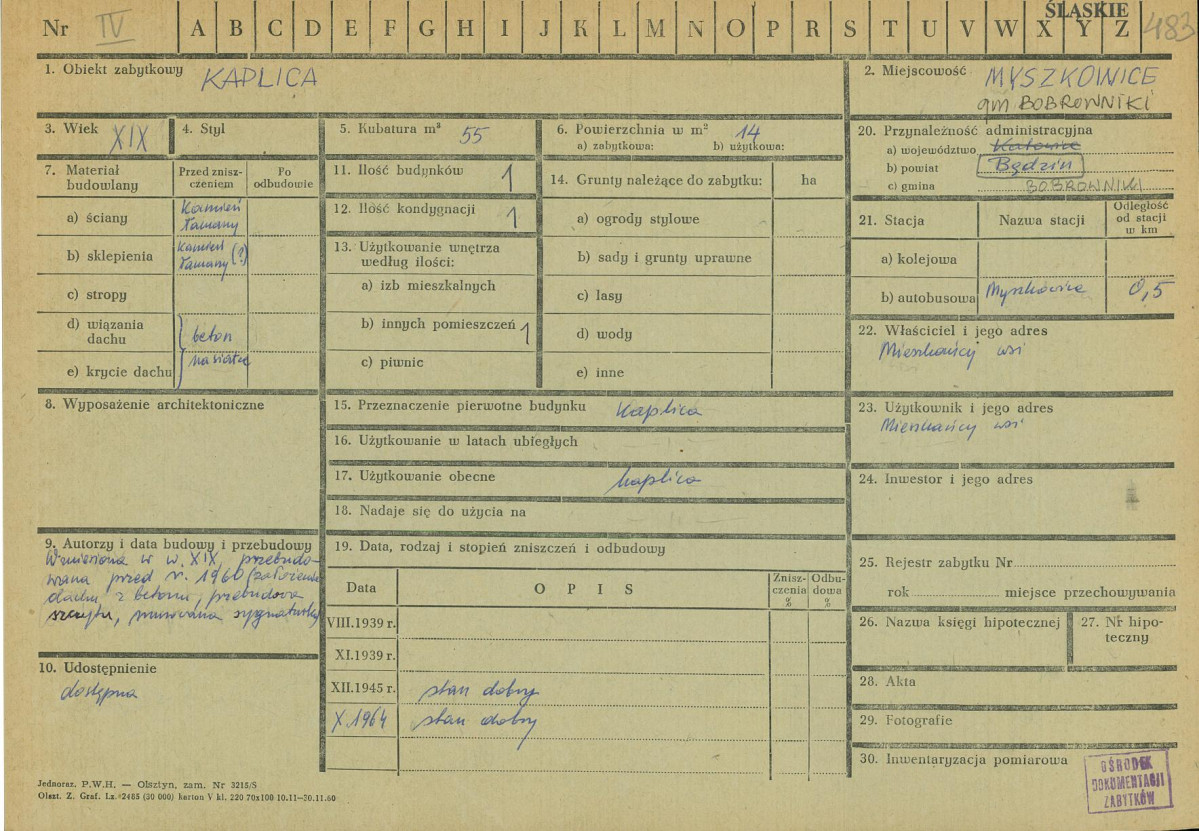 ŚLĄSKIE
Nr IV A B C D E F G H I J K L M N O P R S T U V W X Y Z 483
1. Obiekt zabytkowy KAPLICA
2. Miejscowość MYSZKOWICE
gm BOBROWNIKI
3. Wiek XIX
4. Styl
5. Kubatura m³ 55
6. Powierzchnia w m² 14
a) zabytkowa: b) użytkowa:
20. Przynależność administracyjna
a) województwo Katowice
b) powiat Będzin
c) gmina BOBROWNIKI
7. Materiał budowlany
Przed zniszczeniem
Po odbudowie
a) ściany Kamień łamany
b) sklepienia Kamień łamany (?)
c) stropy
d) wiązania dachu beton
e) krycie dachu na siatce
11. Ilość budynków 1
12. Ilość kondygnacji 1
13. Użytkowanie wnętrza
według ilości:
a) izb mieszkalnych
b) innych pomieszczeń 1
c) piwnic
14. Grunty należące do zabytku: ha
a) ogrody stylowe
b) sady i grunty uprawne
c) lasy
d) wody
e) inne
21. Stacja Nazwa stacji Odległość od stacji w km
a) kolejowa
b) autobusowa Myszkowice 0,5
22. Właściciel i jego adres
Mieszkańcy wsi
8. Wyposażenie architektoniczne
15. Przeznaczenie pierwotne budynku Kaplica
16. Użytkowanie w latach ubiegłych
17. Użytkowanie obecne kaplica
18. Nadaje się do użycia na
23. Użytkownik i jego adres
Mieszkańcy wsi
24. Inwestor i jego adres
9. Autorzy i data budowy i przebudowy
Wzniesiona w w. XIX, przebudo-
wana przed r. 1960 (założenie
dachu z betonu, przebudowa
szczytu, murowana sygnaturka)
10. Udostępnienie
dostępna
19. Data, rodzaj i stopień zniszczeń i odbudowy
Data OPIS Znisz-czenia % Odbu-dowa %
VIII.1939 r.
XI.1939 r.
XII.1945 r. stan dobry
X.1964 stan dobry
25. Rejestr zabytku Nr
rok miejsce przechowywania
26. Nazwa księgi hipotecznej
27. Nr hipo-
teczny
28. Akta
29. Fotografie
30. Inwentaryzacja pomiarowa
OŚRODEK
DOKUMENTACJI
ZABYTKÓW
Jednoraz. P.W.H. — Olsztyn, zam. Nr 3215/S
Olszt. Z. Graf. Lz. 2485 (30 000) karton V kl. 220 70x100 10.11—30.11.60